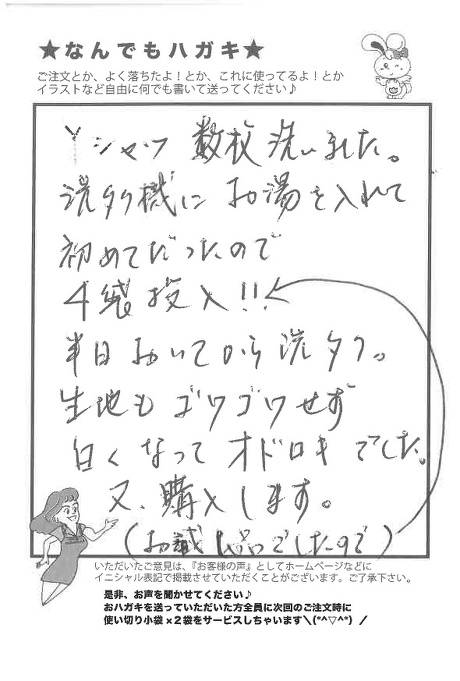 ★なんでもハガキ★
ご注文とか、よく落ちたよ！とか、これに使ってるよ！とか
イラストなど自由に何でも書いて送ってください♪
Yシャツ 数枚 洗いました。
洗タク機に お湯を入れて
初めてだったので
4袋 投入!!
半日おいてから 洗タク。
生地も ゴワゴワせず
白くなって オドロキ でした。
又、購入します。
(お試し品でしたので)
いただいたご意見は、『お客様の声』としてホームページなどに
イニシャル表記で掲載させていただくことがございます。ご了承下さい。
是非、お声を聞かせてください♪
おハガキを送っていただいた方全員に次回のご注文時に
使い切り小袋×2袋をサービスしちゃいます＼(*^▽^*)／